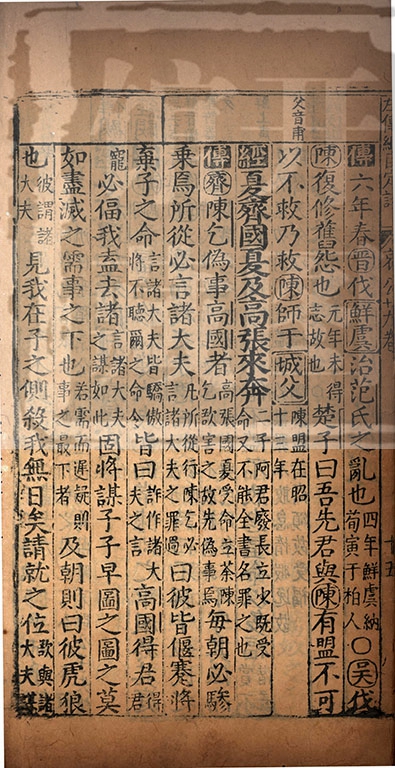 父音甫
傳六年春晉伐鮮虞治范氏之亂也四年鮮虞納荀寅于柏人○吳伐
陳復修舊怨也元年未得志故也楚子曰吾先君與陳有盟不可
以不救乃救陳師于城父陳盟在昭十三年
經夏齊國夏及高張來奔二子阿君廢長立少既受命又不能全書名罪之也
傳齊陳乞偽事高國者高張國夏受命立荼陳乞欲害之故先偽事焉每朝必驂
乘焉所從必言諸大夫凡所從行陳乞必言諸大夫之罪過曰彼皆偃蹇將
棄子之命言諸大夫皆驕傲將不聽爾之命令皆曰詐作諸大夫之言高國得君得君
寵必偪我盍去諸言諸大夫之謀如此固將謀子子早圖之圖之莫
如盡滅之需事之下也若需而遲疑則事之最下者及朝則曰彼虎狼
也彼謂諸大夫見我在子之側殺我無日矣請就之位欲與諸大夫